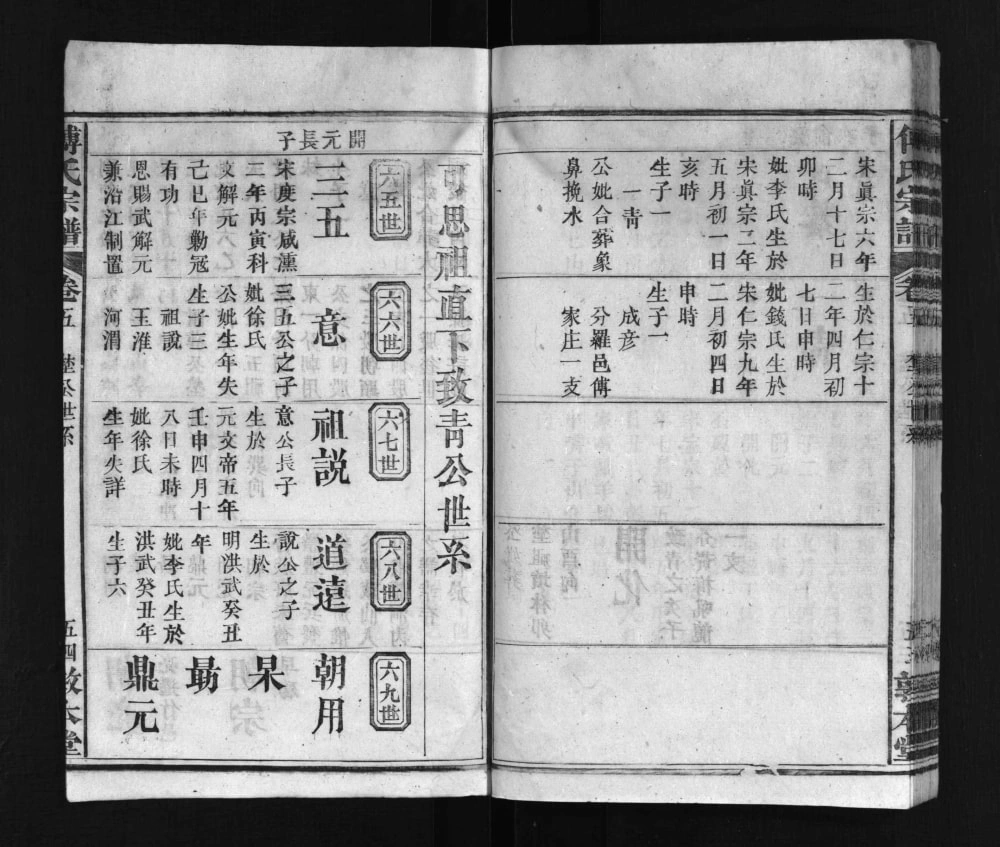 傅氏宗譜
卷五
宋眞宗六年
二月十七日
卯時
妣李氏生於
宋眞宗二年
五月初一日
亥時
生子一
一靑
公妣合葬象
鼻挽水
生於仁宗十
二年四月初
七日申時
妣錢氏生於
宋仁宗九年
二月初四日
申時
生子一
成彦
分羅邑傅
家庄一支
可思祖直下致靑公世系
開元長子
六五世
三五
宋度宗咸湻
二年丙寅科
文解元
己巳年勦冠
有功
恩賜武解元
兼沿江制置
六六世
意
三五公之子
妣徐氏
公妣生年失
生子三
祖說
王淮
河渭
六七世
祖説
意公長子
生於
元文帝五年
壬申四月十
八日未時
妣徐氏
生年失詳
六八世
道遠
説公之子
生於
明洪武癸丑
年
妣李氏生於
洪武癸丑年
生子六
六九世
朝用
杲
勗
鼎元
傅氏宗譜
卷五
世系
五四
敦本堂